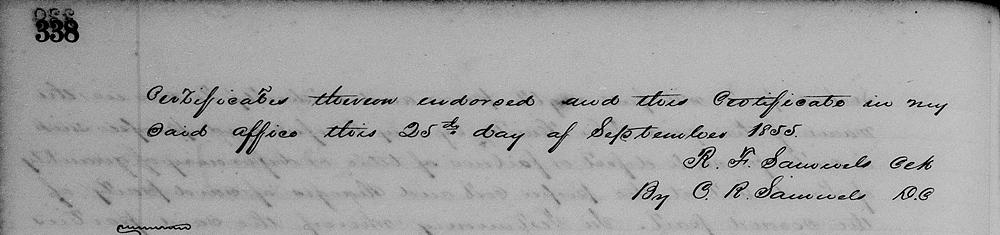 338
Certificates thereon endorsed and this Certificate in my
said office this 25th day of September 1855
R. F. Samuels Clk
By C. R. Samuels D.C